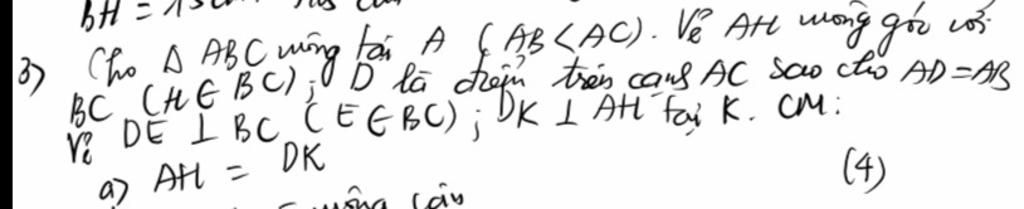 BH =
3) Cho Δ ABC vuông tại A (AB < AC). Vẽ AH vuông góc với
BC (H ∈ BC); D là điểm trên cạnh AC sao cho AD = AB
Vẽ DE ⊥ BC (E ∈ BC); DK ⊥ AH tại K. CM:
a) AH = DK
(4)
vuông cân